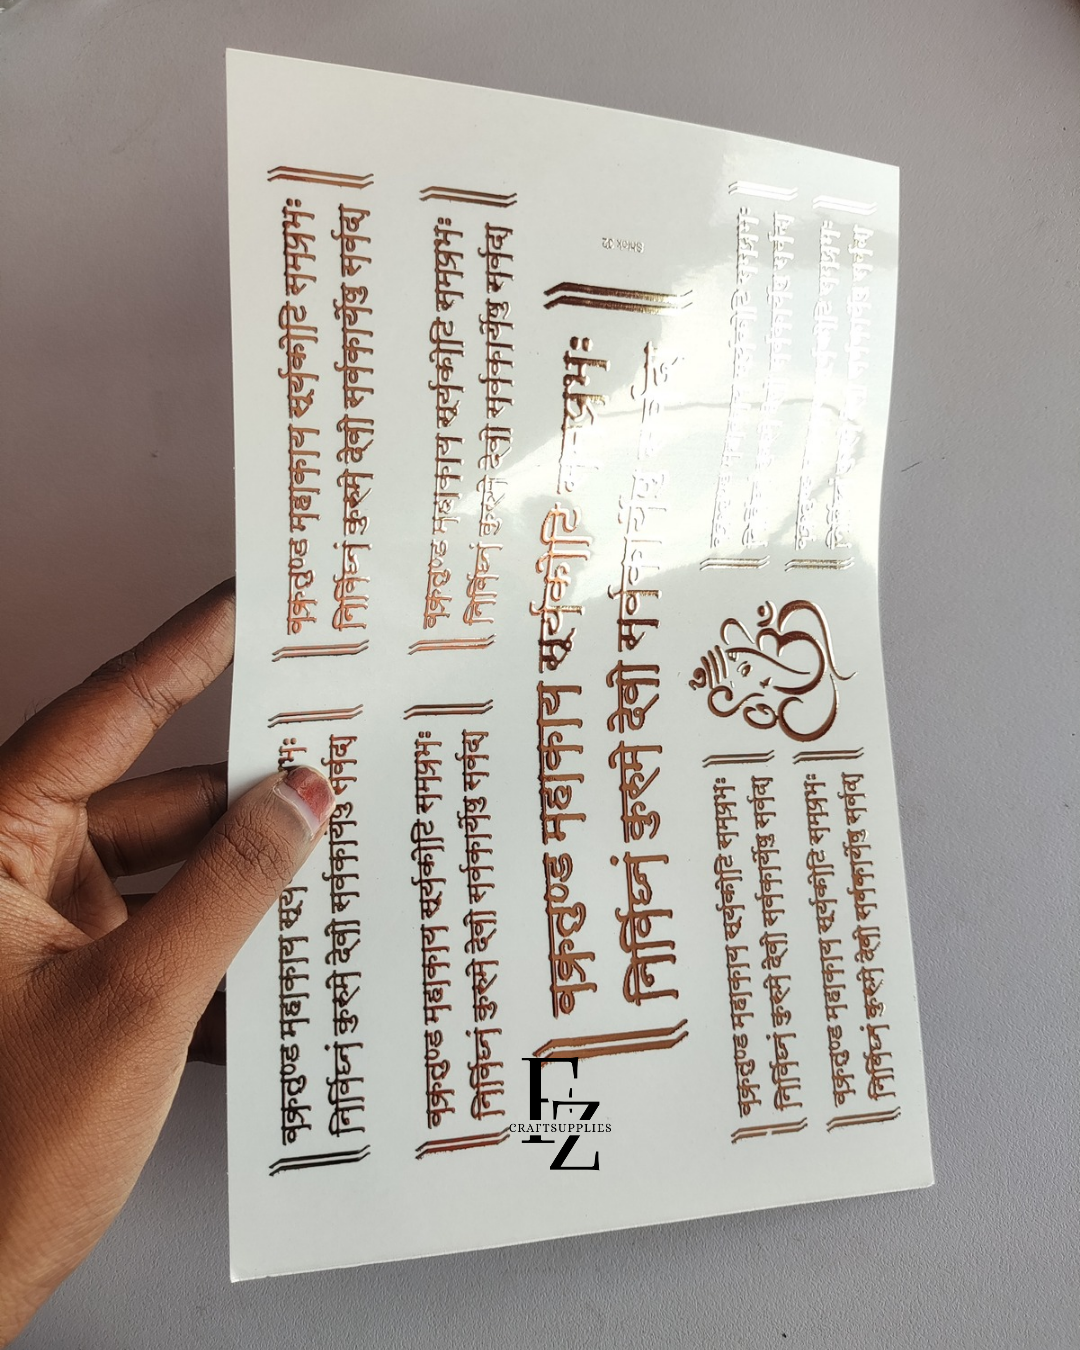 ॥ वक्रतुण्ड महाकाय
निर्विघ्नं कुरुमे देवो सर्वकार्येषु सर्वदा ॥
॥ वक्रतुण्ड महाकाय सूर्यकोटि समप्रभः
निर्विघ्नं कुरुमे देवो सर्वकार्येषु सर्वदा ॥
॥ वक्रतुण्ड महाकाय सूर्यकोटि समप्रभः
निर्विघ्नं कुरुमे देवो सर्वकार्येषु सर्वदा ॥
॥ वक्रतुण्ड महाकाय सूर्यकोटि समप्रभः
निर्विघ्नं कुरुमे देवो सर्वकार्येषु सर्वदा ॥
Shlok 32
॥ वक्रतुण्ड महाकाय सूर्यकोटि समप्रभः
निर्विघ्नं कुरुमे देवो सर्वकार्येषु ॥
॥ वक्रतुण्ड महाकाय सूर्यकोटि समप्रभः
निर्विघ्नं कुरुमे देवो सर्वकार्येषु सर्वदा ॥
॥ वक्रतुण्ड महाकाय सूर्यकोटि समप्रभः
निर्विघ्नं कुरुमे देवो सर्वकार्येषु सर्वदा ॥
EZ
CRAFTSUPPLIES